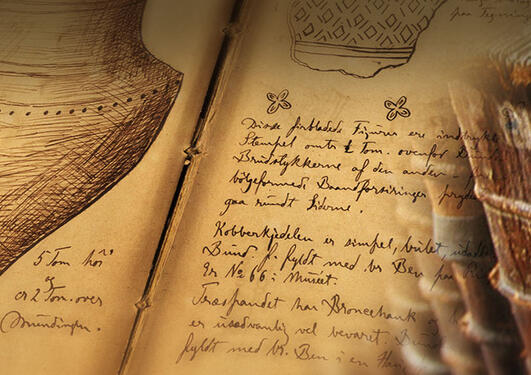 5 Tom høi
og
er 2 Tom. over
Mundingen.
paa Figuren
Disse firbladede Figurer ere indtrykte
Stempel omtr. ½ Tom. ovenfor
Brudstykkerne af den anden
bølgeformede Baandforsiringer
gaa rundt Siderne.
Kobberkjedelen er simpel, bulet,
Bund f. fyldt med br. Ben paa
Er № 66 i Museet.
Træspandet har Broncehank og
er usædvanlig vel bevaret.
fyldt med br. Ben i en